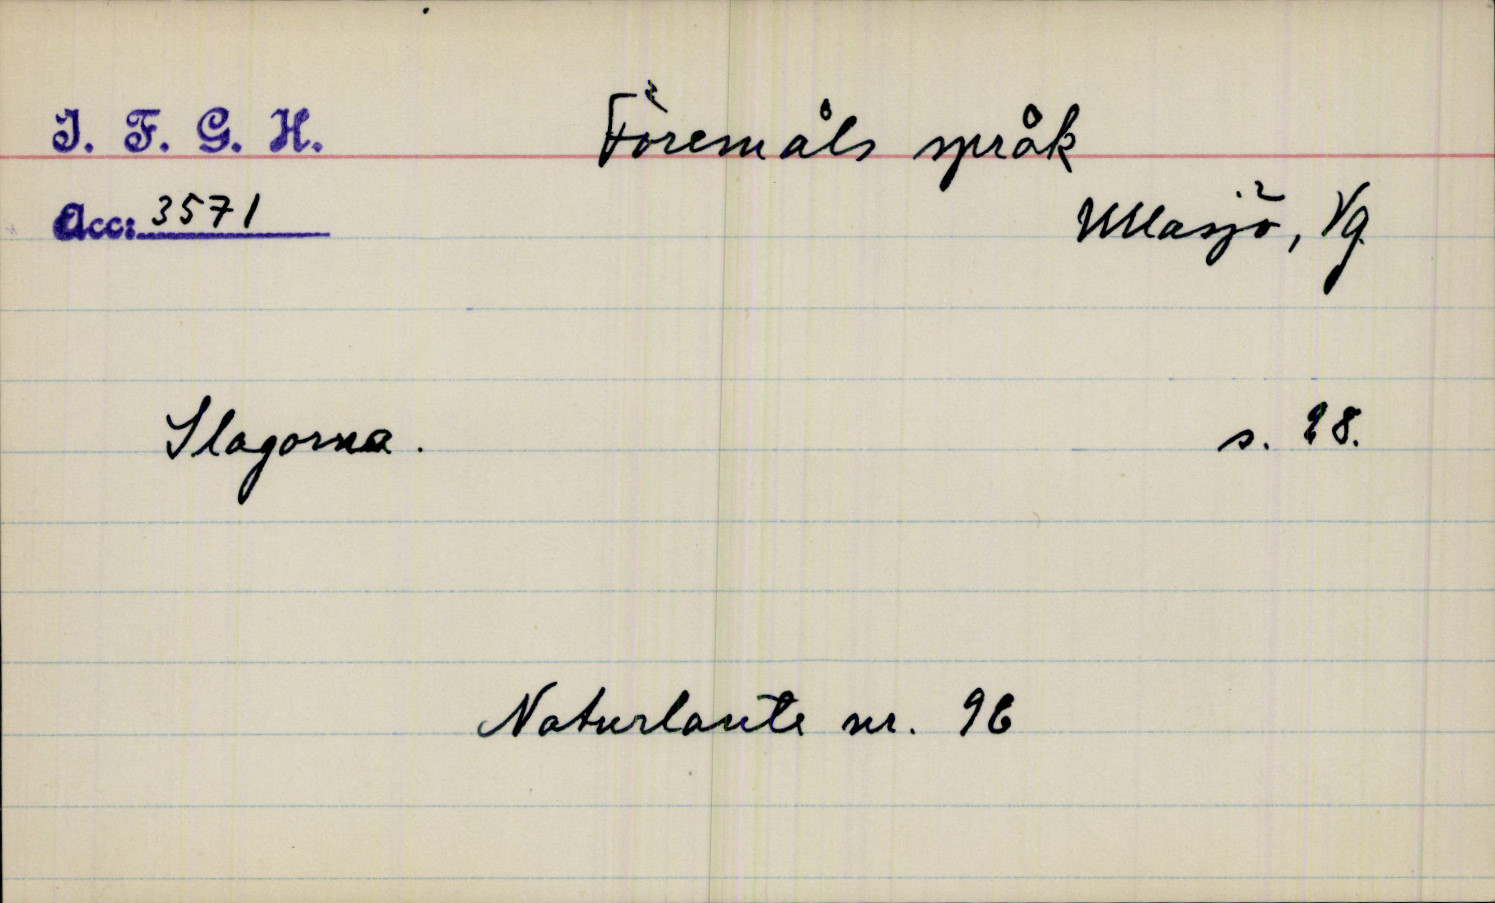 I. F. G. H.
Föremåls språk
Acc: 3571
Ullasjö, Vg.
Slagorna. s. 28.
Naturlaute nr. 96